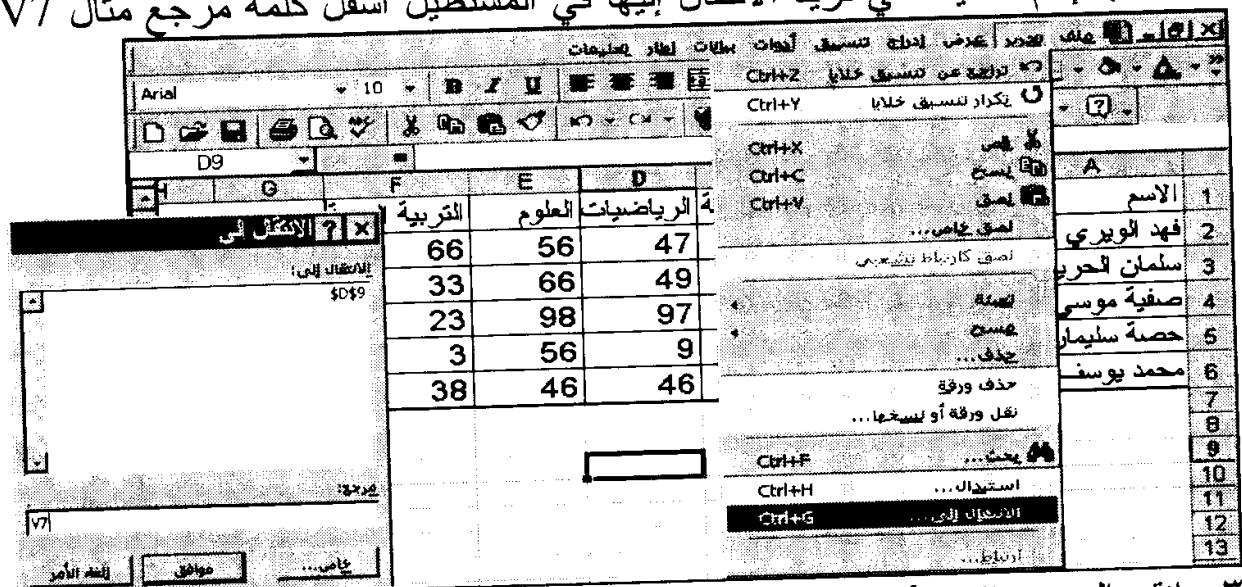 في المستطيل أسفل كلمة مرجع مثال V7
ملف تحرير عرض إدراج تنسيق أدوات بيانات إطار تعليمات
Arial 10 B I U
D9 =
تراجع عن تنسيق خلايا Ctrl+Z
تكرار تنسيق خلايا Ctrl+Y
قص Ctrl+X
نسخ Ctrl+C
لصق Ctrl+V
لصق خاص...
لصق كارتباط تشعبي
تعبئة
مسح
حذف...
حذف ورقة
نقل ورقة أو نسخها...
بحث... Ctrl+F
استبدال... Ctrl+H
الانتقال إلى... Ctrl+G
ارتباط...
A D E F G H
1 الاسم الرياضيات العلوم التربية
2 فهد الويري 47 56 66
3 سلمان الحربي 49 66 33
4 صفية موسى 97 98 23
5 حصة سليمان 9 56 3
6 محمد يوسف 46 46 38
7
8
9
10
11
12
13
الانتقال إلى
الانتقال إلى:
$D$9
مرجع:
V7
خاص... موافق إلغاء الأمر